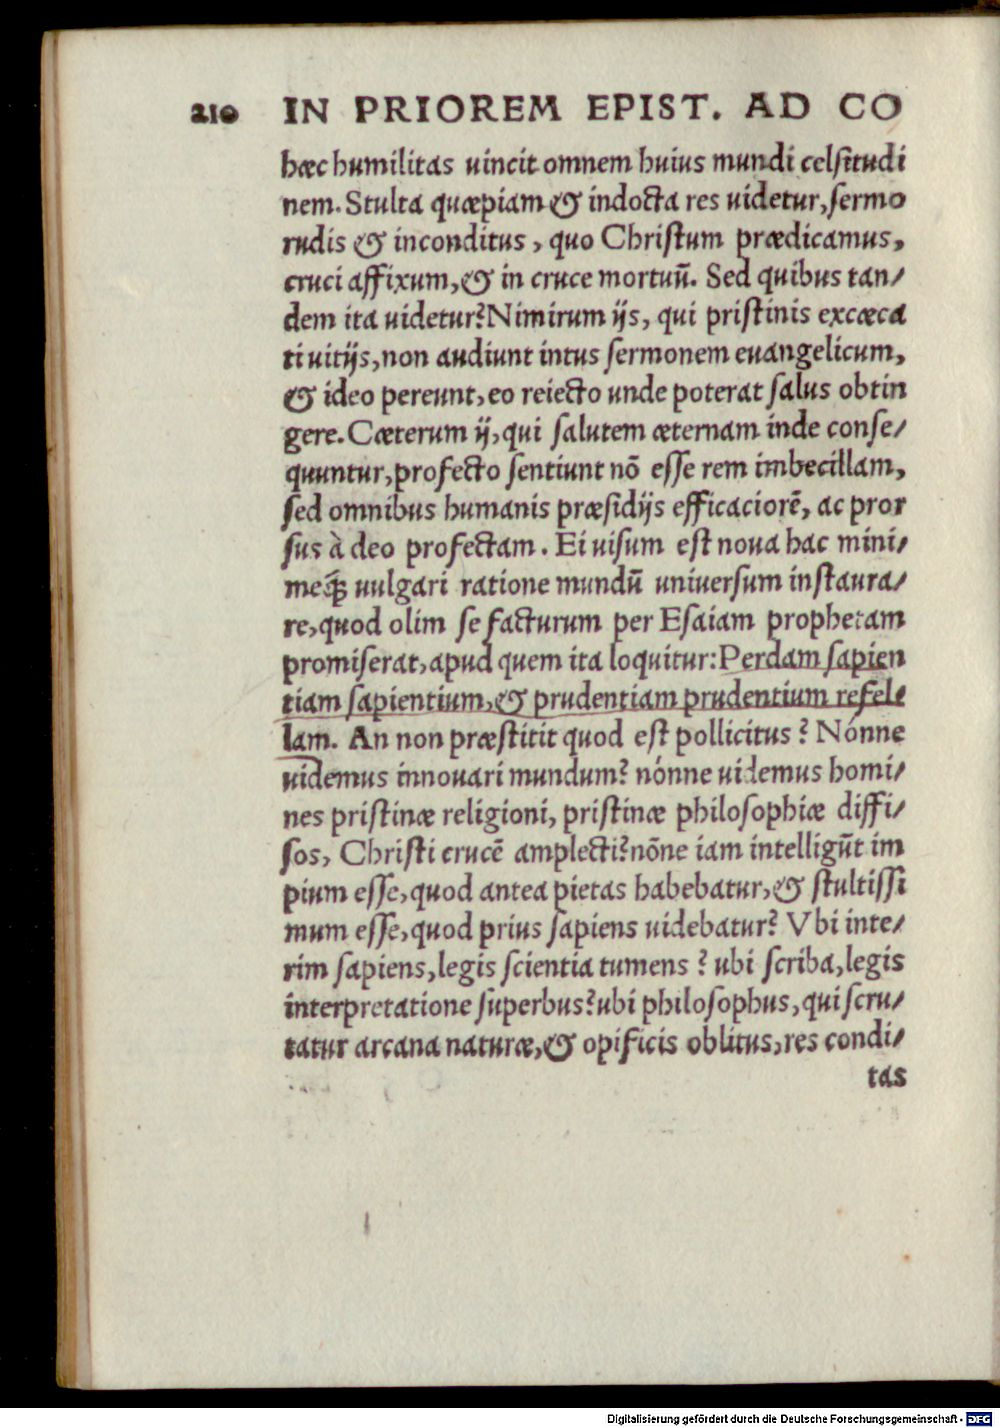 210 IN PRIOREM EPIST. AD CO
hæc humilitas uincit omnem huius mundi celsitudi
nem. Stulta quæpiam & indocta res uidetur, sermo
rudis & inconditus, quo Christum prædicamus,
cruci affixum, & in cruce mortuũ. Sed quibus tan/
dem ita uidetur? Nimirum ijs, qui pristinis excæca
ti uitijs, non audiunt intus sermonem euangelicum,
& ideo pereunt, eo reiecto unde poterat salus obtin
gere. Cæterum ij, qui salutem æternam inde conse/
quuntur, profecto sentiunt nõ esse rem imbecillam,
sed omnibus humanis præsidijs efficaciorẽ, ac pror
sus à deo profectam. Ei uisum est noua hac mini/
meq́ꝫ uulgari ratione mundũ uniuersum instaura/
re, quod olim se facturum per Esaiam prophetam
promiserat, apud quem ita loquitur: Perdam sapien
tiam sapientium, & prudentiam prudentium refel/
lam. An non præstitit quod est pollicitus? Nónne
uidemus innouari mundum? nónne uidemus homi/
nes pristinæ religioni, pristinæ philosophiæ diffi/
sos, Christi crucẽ amplecti? nõne iam intelligũt im
pium esse, quod antea pietas habebatur, & stultissi
mum esse, quod prius sapiens uidebatur? Vbi inte/
rim sapiens, legis scientia tumens? ubi scriba, legis
interpretatione superbus? ubi philosophus, qui scru/
tatur arcana naturæ, & opificis oblitus, res condi/
tas
Digitalisierung gefördert durch die Deutsche Forschungsgemeinschaft - DFG